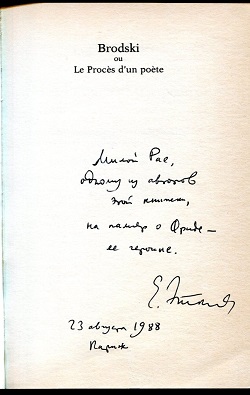 Brodski
ou
Le Procès d'un poète
Милой Рае,
одному из авторов
этой книжки,
на память о Фриде —
ее героине.
Е. Эткинд
23 августа 1988
Париж